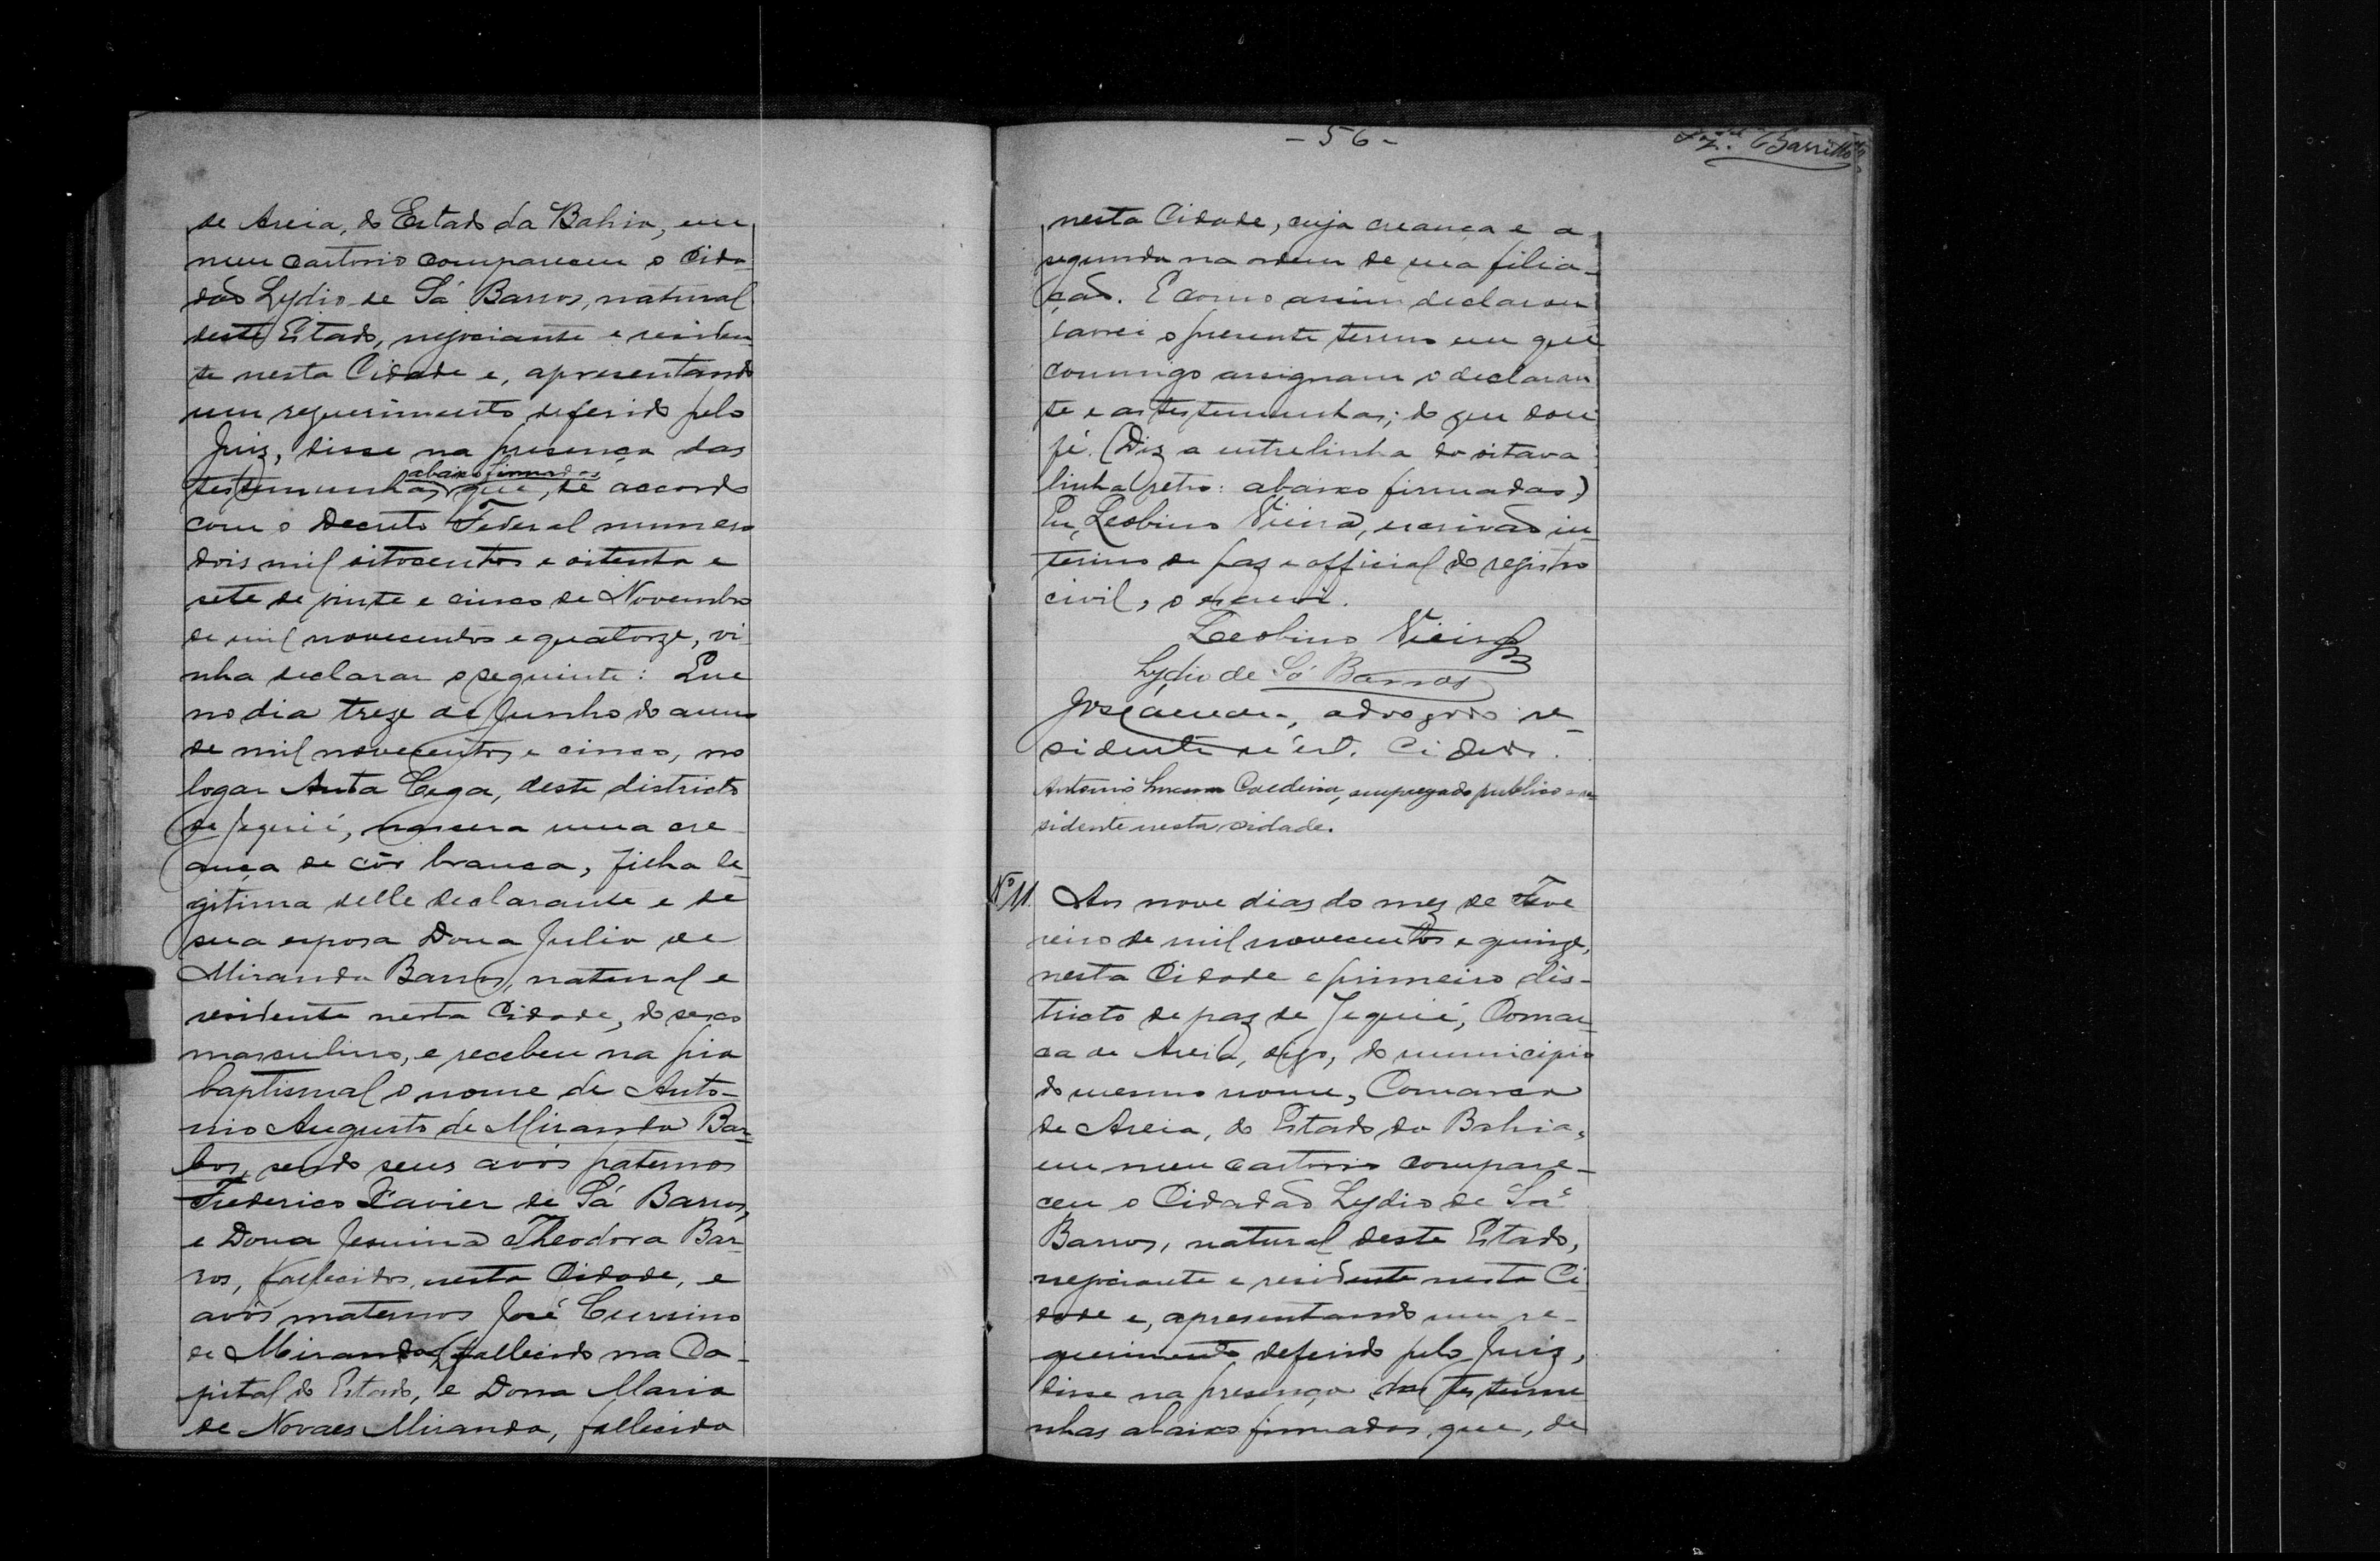 de Areia, do Estado da Bahia, em
meu cartorio compareceu o Cida-
dão Lydio de Sá Barros, natural
deste Estado, negociante e residen-
te nesta Cidade e, apresentando
um requerimento deferido pelo
Juiz, disse na presença das
abaixo firmadas
testemunhas que, de accordo
com o Decreto Federal numero
dois mil oitocentos e oitenta e
sete de vinte e cinco de Novembro
de mil novecentos e quatorze, vi-
nha declarar o seguinte: Que
no dia treze de Junho do anno
de mil novecentos e cinco, no
logar Anta Cega, deste districto
de Jequié, nascera uma cre-
ança de côr branca, filha le-
gitima delle declarante e de
sua esposa Dona Julia de
Miranda Barros, natural e
residente nesta Cidade, do sexo
masculino, e recebeu na pia
baptismal o nome de Anto-
nio Augusto de Miranda Bar-
ros, sendo seus avós paternos
Frederico Xavier de Sá Barros,
e Dona Jesuina Theodora Bar-
ros, fallecidos nesta Cidade, e
avós maternos José Cursino
de Miranda, fallecido na Ca-
pital do Estado, e Dona Maria
de Novaes Miranda, fallecida
- 56 -
Barretto
nesta Cidade, cuja creança e a
segunda na ordem de sua filia-
ção. E como assim declarou
lavrei o presente termo em que
commigo assignam o declaran-
te e as testemunhas; do que dou
fé. (Diz a entrelinha da oitava
linha retro: abaixo firmadas.)
Eu, Leobino Vieira, escrivão in-
terino de paz e official do registro
civil, o escrevi.
Leobino Vieira
Lydio de Sá Barros
José, advogado re-
sidente n'est. Cidade.
Antonio Caldeira, empregado publico e re-
sidente nesta cidade.
Nº 11. Aos nove dias do mez de Feve-
reiro de mil novecentos e quinze,
nesta Cidade e primeiro dis-
tricto de paz de Jequié, Comar-
ca de Areia, digo, do municipio
do mesmo nome, Comarca
de Areia, do Estado da Bahia,
em meu cartorio compare-
ceu o Cidadão Lydio de Sá
Barros, natural deste Estado,
negociante e residente nesta Ci-
dade e, apresentando um re-
querimento deferido pelo Juiz,
disse na presença das testemu-
nhas abaixo firmadas, que, de